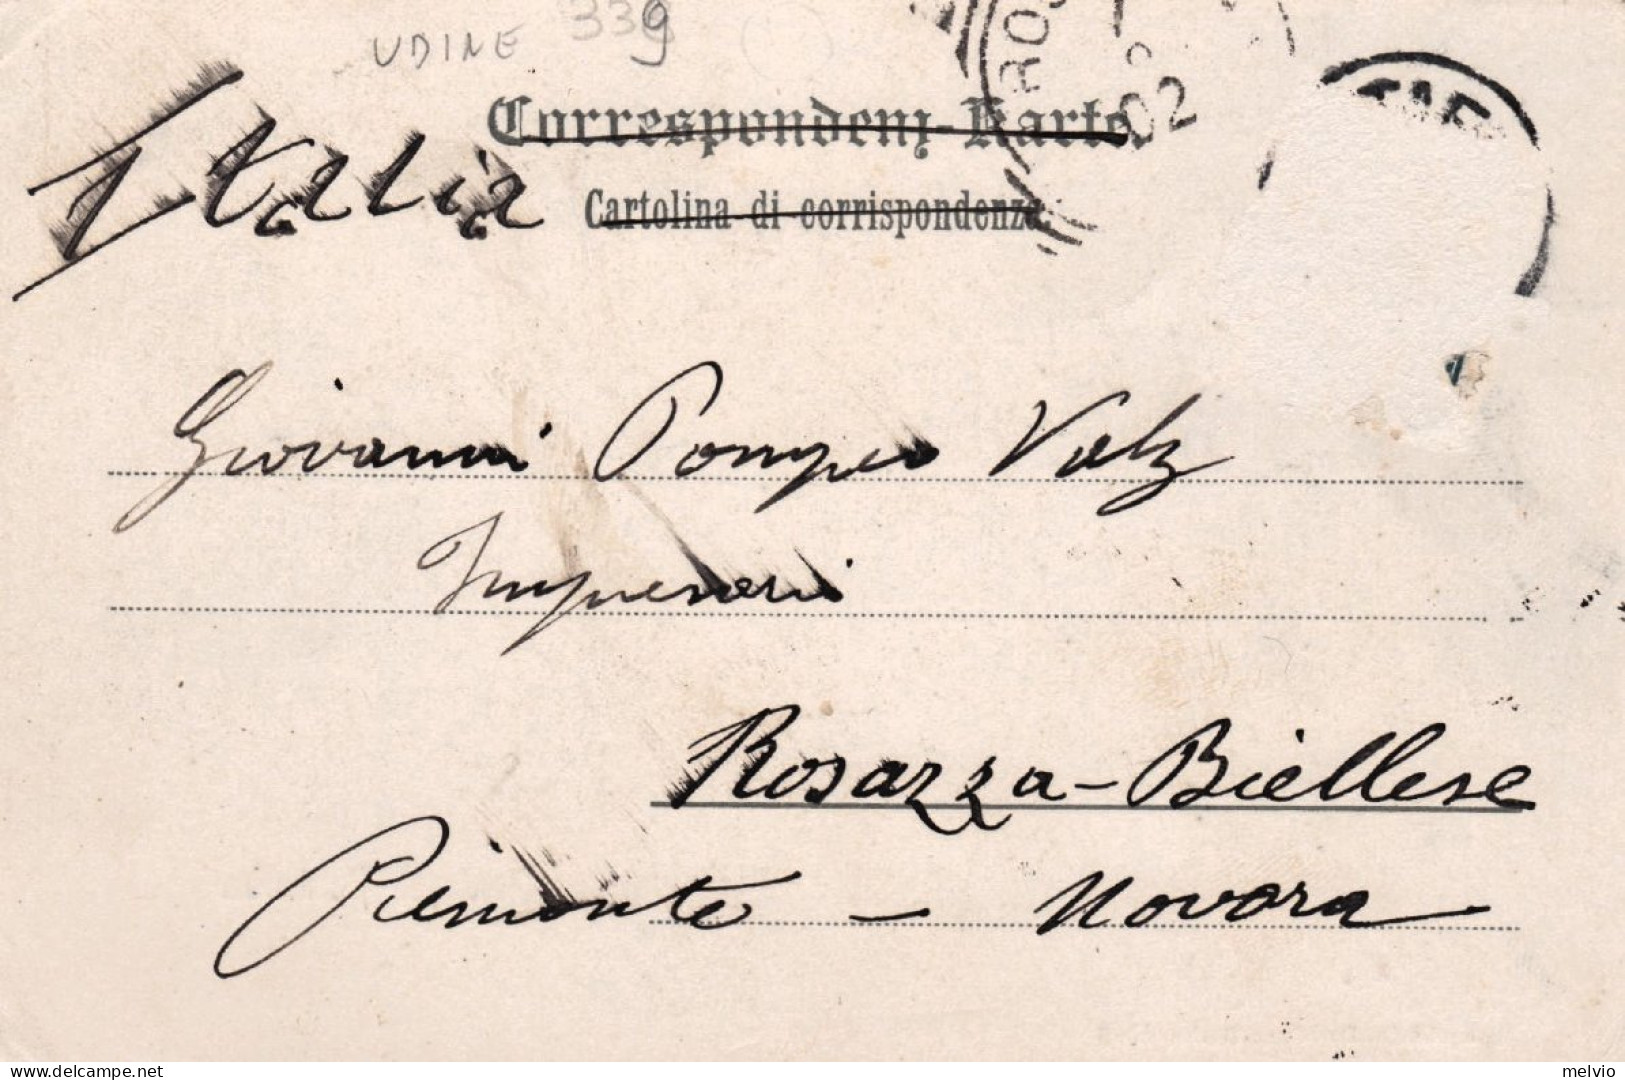 UDINE 339
Correspondenz-Karte.
Italia
Cartolina di corrispondenza.
02
Giovanni Pompeo Valz
Impresari
Rosazza-Biellese
Piemonte - Novara
delcampe.net
melvio